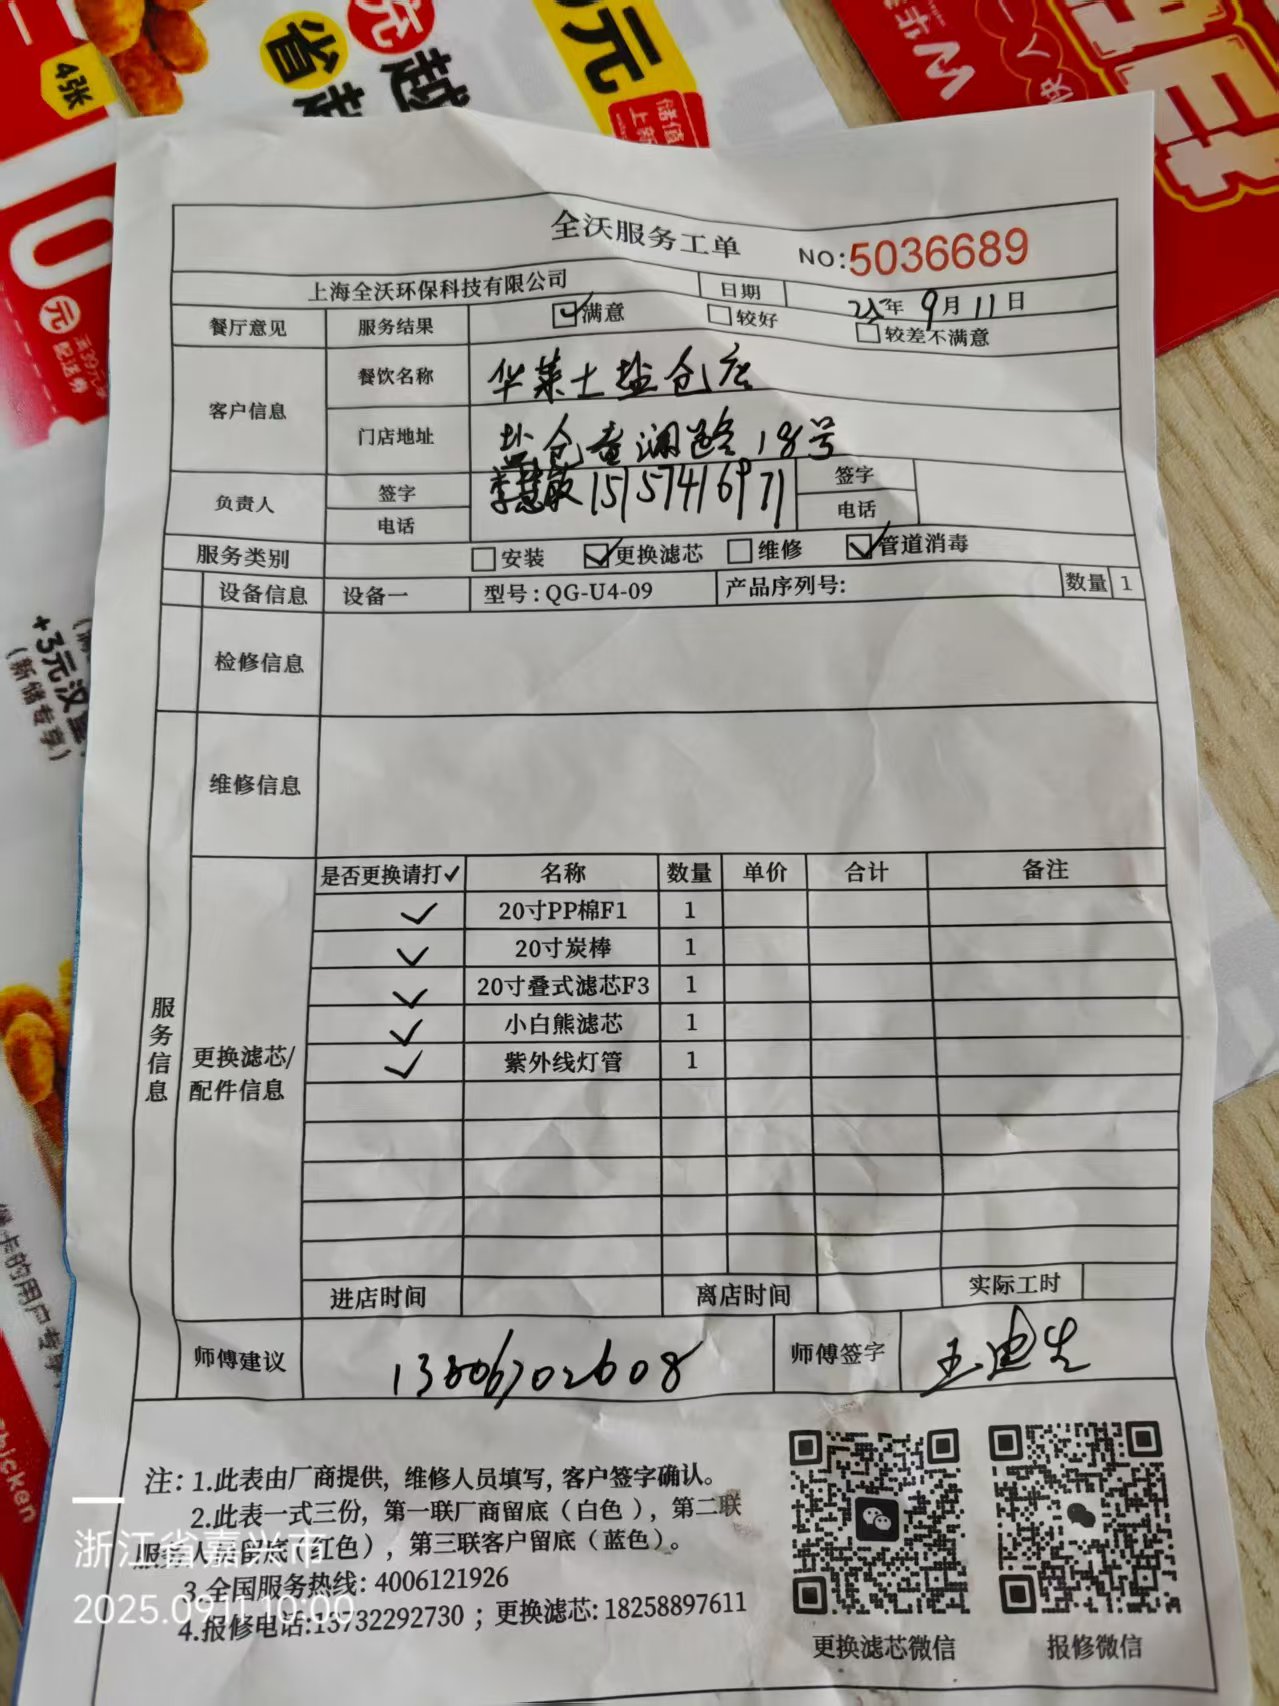 4张
省
越
元
储值
上新
0
元
配送券
+3元汉堡
(新储专享)
Chicken
全沃服务工单 NO:5036689
上海全沃环保科技有限公司 日期 25年9月11日
餐厅意见 服务结果 ☑满意 □较好 □较差不满意
客户信息 餐饮名称 华莱士盐仓店
门店地址 盐仓 澜 路18号
负责人 签字 电话 李慧敏 15157416971 签字 电话
服务类别 □安装 ☑更换滤芯 □维修 ☑管道消毒
设备信息 设备一 型号:QG-U4-09 产品序列号: 数量 1
检修信息
服务信息
维修信息
更换滤芯/配件信息
是否更换请打✓ 名称 数量 单价 合计 备注
✓ 20寸PP棉F1 1
✓ 20寸炭棒 1
✓ 20寸叠式滤芯F3 1
✓ 小白熊滤芯 1
✓ 紫外线灯管 1
进店时间 离店时间 实际工时
师傅建议 13806702608 师傅签字 王迪生
注: 1.此表由厂商提供, 维修人员填写, 客户签字确认。
2.此表一式三份, 第一联厂商留底(白色), 第二联
服务人员留底(红色), 第三联客户留底(蓝色)。
3.全国服务热线: 4006121926
4.报修电话:13732292730 ; 更换滤芯: 18258897611
更换滤芯微信 报修微信
浙江省嘉兴市
2025.09.11 10:00